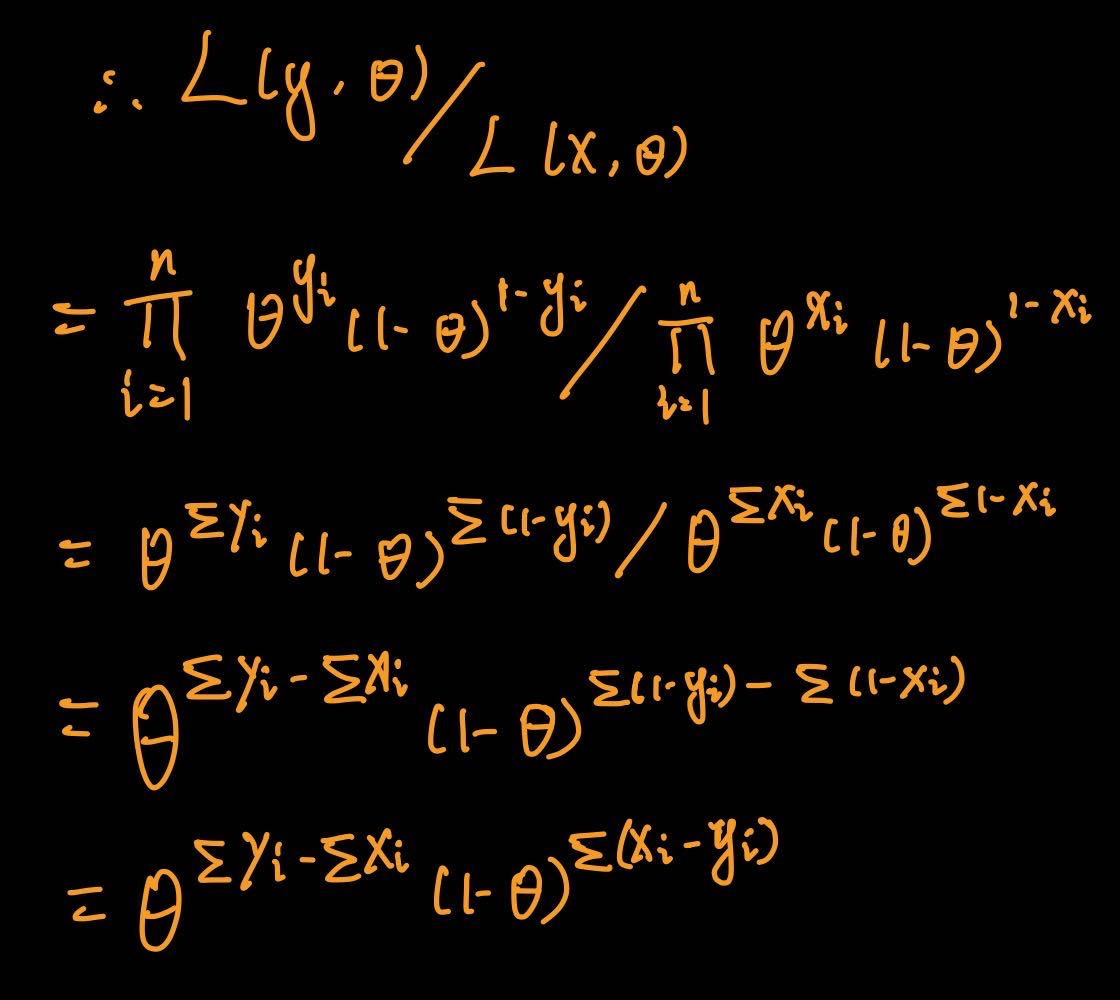 ∴ L(y, θ) / L(x, θ)
= ∏_{i=1}^{n} θ^{y_i} (1-θ)^{1-y_i} / ∏_{i=1}^{n} θ^{x_i} (1-θ)^{1-x_i}
= θ^{Σy_i} (1-θ)^{Σ(1-y_i)} / θ^{Σx_i} (1-θ)^{Σ1-x_i}
= θ^{Σy_i - Σx_i} (1-θ)^{Σ(1-y_i) - Σ(1-x_i)}
= θ^{Σy_i - Σx_i} (1-θ)^{Σ(x_i - y_i)}